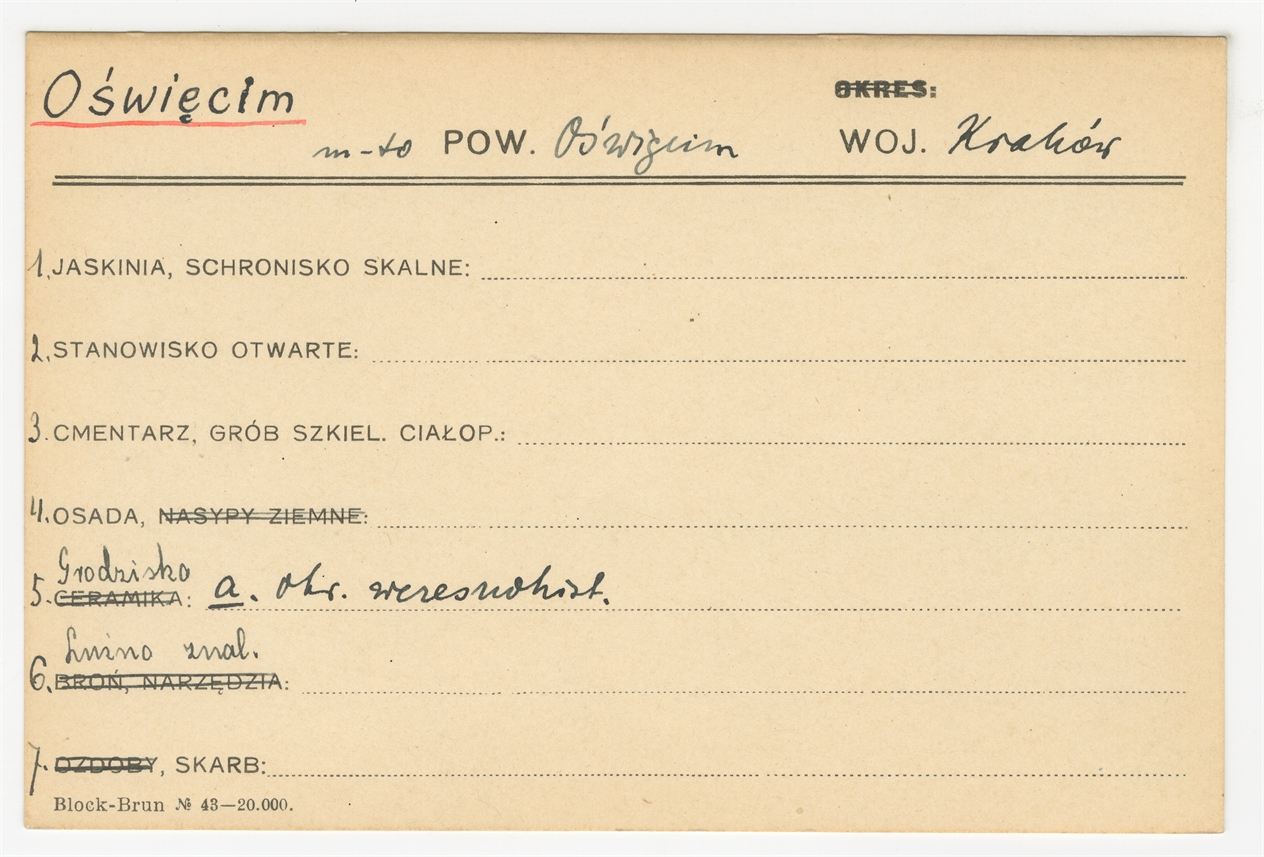 Oświęcim
OKRES:
m-to POW. Oświęcim WOJ. Kraków
1. JASKINIA, SCHRONISKO SKALNE:
2. STANOWISKO OTWARTE:
3. CMENTARZ, GRÓB SZKIEL. CIAŁOP.:
4. OSADA, NASYPY ZIEMNE:
Grodzisko
5. CERAMIKA: a. okr. wczesnohist.
Luźno znal.
6. BROŃ, NARZĘDZIA:
7. OZDOBY, SKARB:
Block-Brun № 43—20.000.